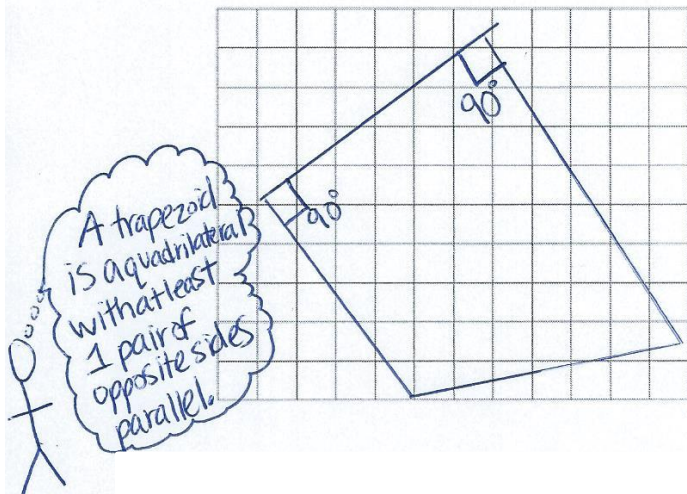 A trapezoid
is a quadrilateral
with at least
1 pair of
opposite sides
parallel.
90°
90°